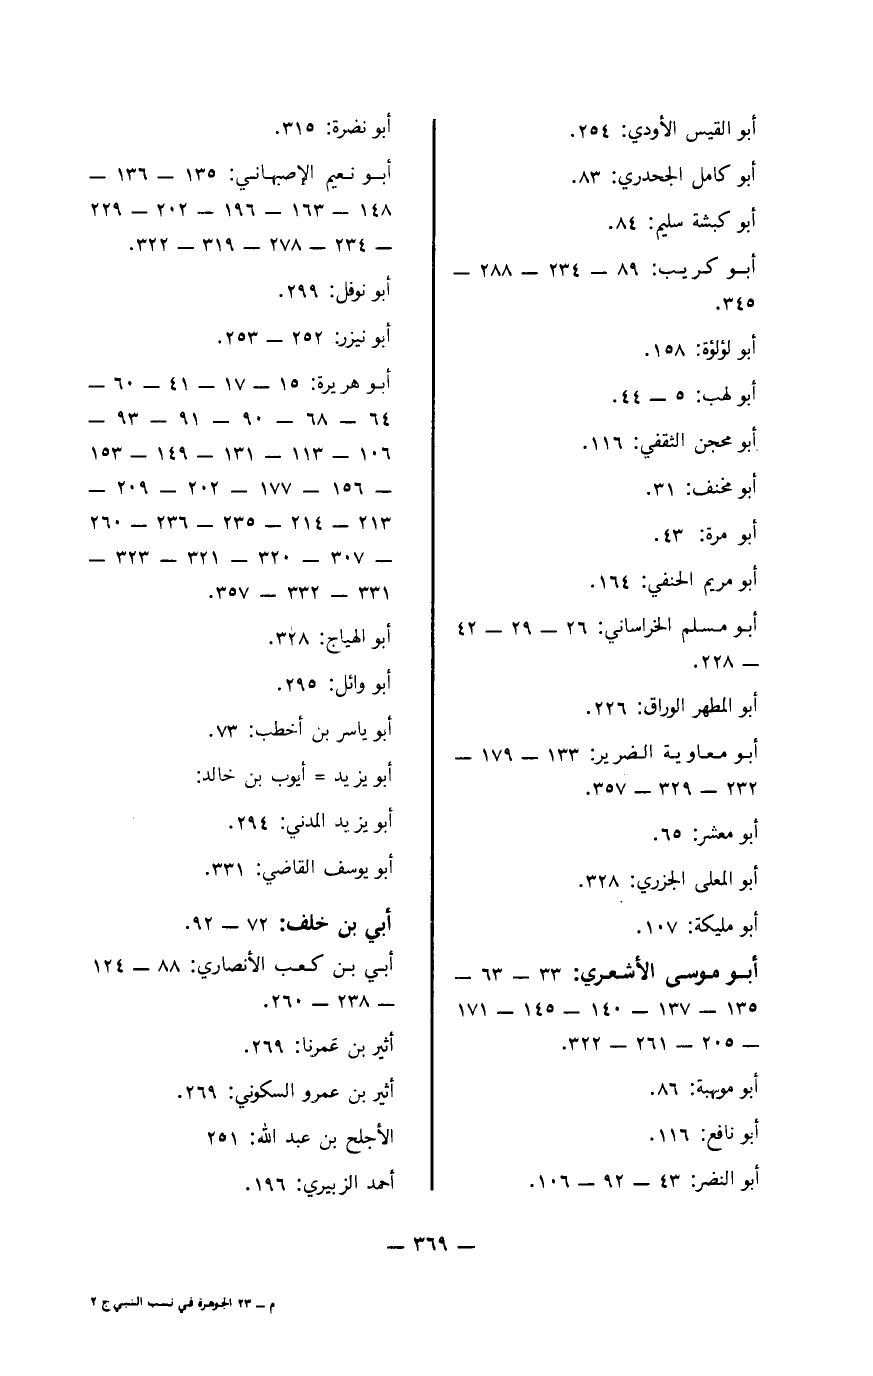 أبو القيس الأودي: ٢٥٤.
أبو كامل الجحدري: ٨٣.
أبو كبشة سليم: ٨٤.
أبو كريب: ٨٩ – ٢٣٤ – ٢٨٨ –
٣٤٥.
أبو لؤلؤة: ١٥٨.
أبو لهب: ٥ – ٤٤.
أبو محجن الثقفي: ١١٦.
أبو مخنف: ٣١.
أبو مرة: ٤٣.
أبو مريم الحنفي: ١٦٤.
أبو مسلم الخراساني: ٢٦ – ٢٩ – ٤٢
– ٢٢٨.
أبو المطهر الوراق: ٢٢٦.
أبو معاوية الضرير: ١٣٣ – ١٧٩ –
٢٣٢ – ٣٢٩ – ٣٥٧.
أبو معشر: ٦٥.
أبو المعلى الجزري: ٣٢٨.
أبو مليكة: ١٠٧.
أبو موسى الأشعري: ٣٣ – ٦٣ –
١٣٥ – ١٣٧ – ١٤٠ – ١٤٥ – ١٧١
– ٢٠٥ – ٢٦١ – ٣٢٢.
أبو مويهبة: ٨٦.
أبو نافع: ١١٦.
أبو النضر: ٤٣ – ٩٢ – ١٠٦.
أبو نضرة: ٣١٥.
أبو نعيم الإصبهاني: ١٣٥ – ١٣٦ –
١٤٨ – ١٦٣ – ١٩٦ – ٢٠٢ – ٢٢٩
– ٢٣٤ – ٢٧٨ – ٣١٩ – ٣٢٢.
أبو نوفل: ٢٩٩.
أبو نيزر: ٢٥٢ – ٢٥٣.
أبو هريرة: ١٥ – ١٧ – ٤١ – ٦٠ –
٦٤ – ٦٨ – ٩٠ – ٩١ – ٩٣ –
١٠٦ – ١١٣ – ١٣١ – ١٤٩ – ١٥٣
– ١٥٦ – ١٧٧ – ٢٠٢ – ٢٠٩ –
٢١٣ – ٢١٤ – ٢٣٥ – ٢٣٦ – ٢٦٠
– ٣٠٧ – ٣٢٠ – ٣٢١ – ٣٢٣ –
٣٣١ – ٣٣٢ – ٣٥٧.
أبو الهياج: ٣٢٨.
أبو وائل: ٢٩٥.
أبو ياسر بن أخطب: ٧٣.
أبو يزيد = أيوب بن خالد:
أبو يزيد المدني: ٢٩٤.
أبو يوسف القاضي: ٣٣١.
أبي بن خلف: ٧٢ – ٩٢.
أبي بن كعب الأنصاري: ٨٨ – ١٢٤
– ٢٣٨ – ٢٦٠.
أثير بن عمرنا: ٢٦٩.
أثير بن عمرو السكوني: ٢٦٩.
الأجلح بن عبد الله: ٢٥١
أحمد الزبيري: ١٩٦.
– ٣٦٩ –
م – ٢٣ الجوهرة في نسب النبي ج ٢